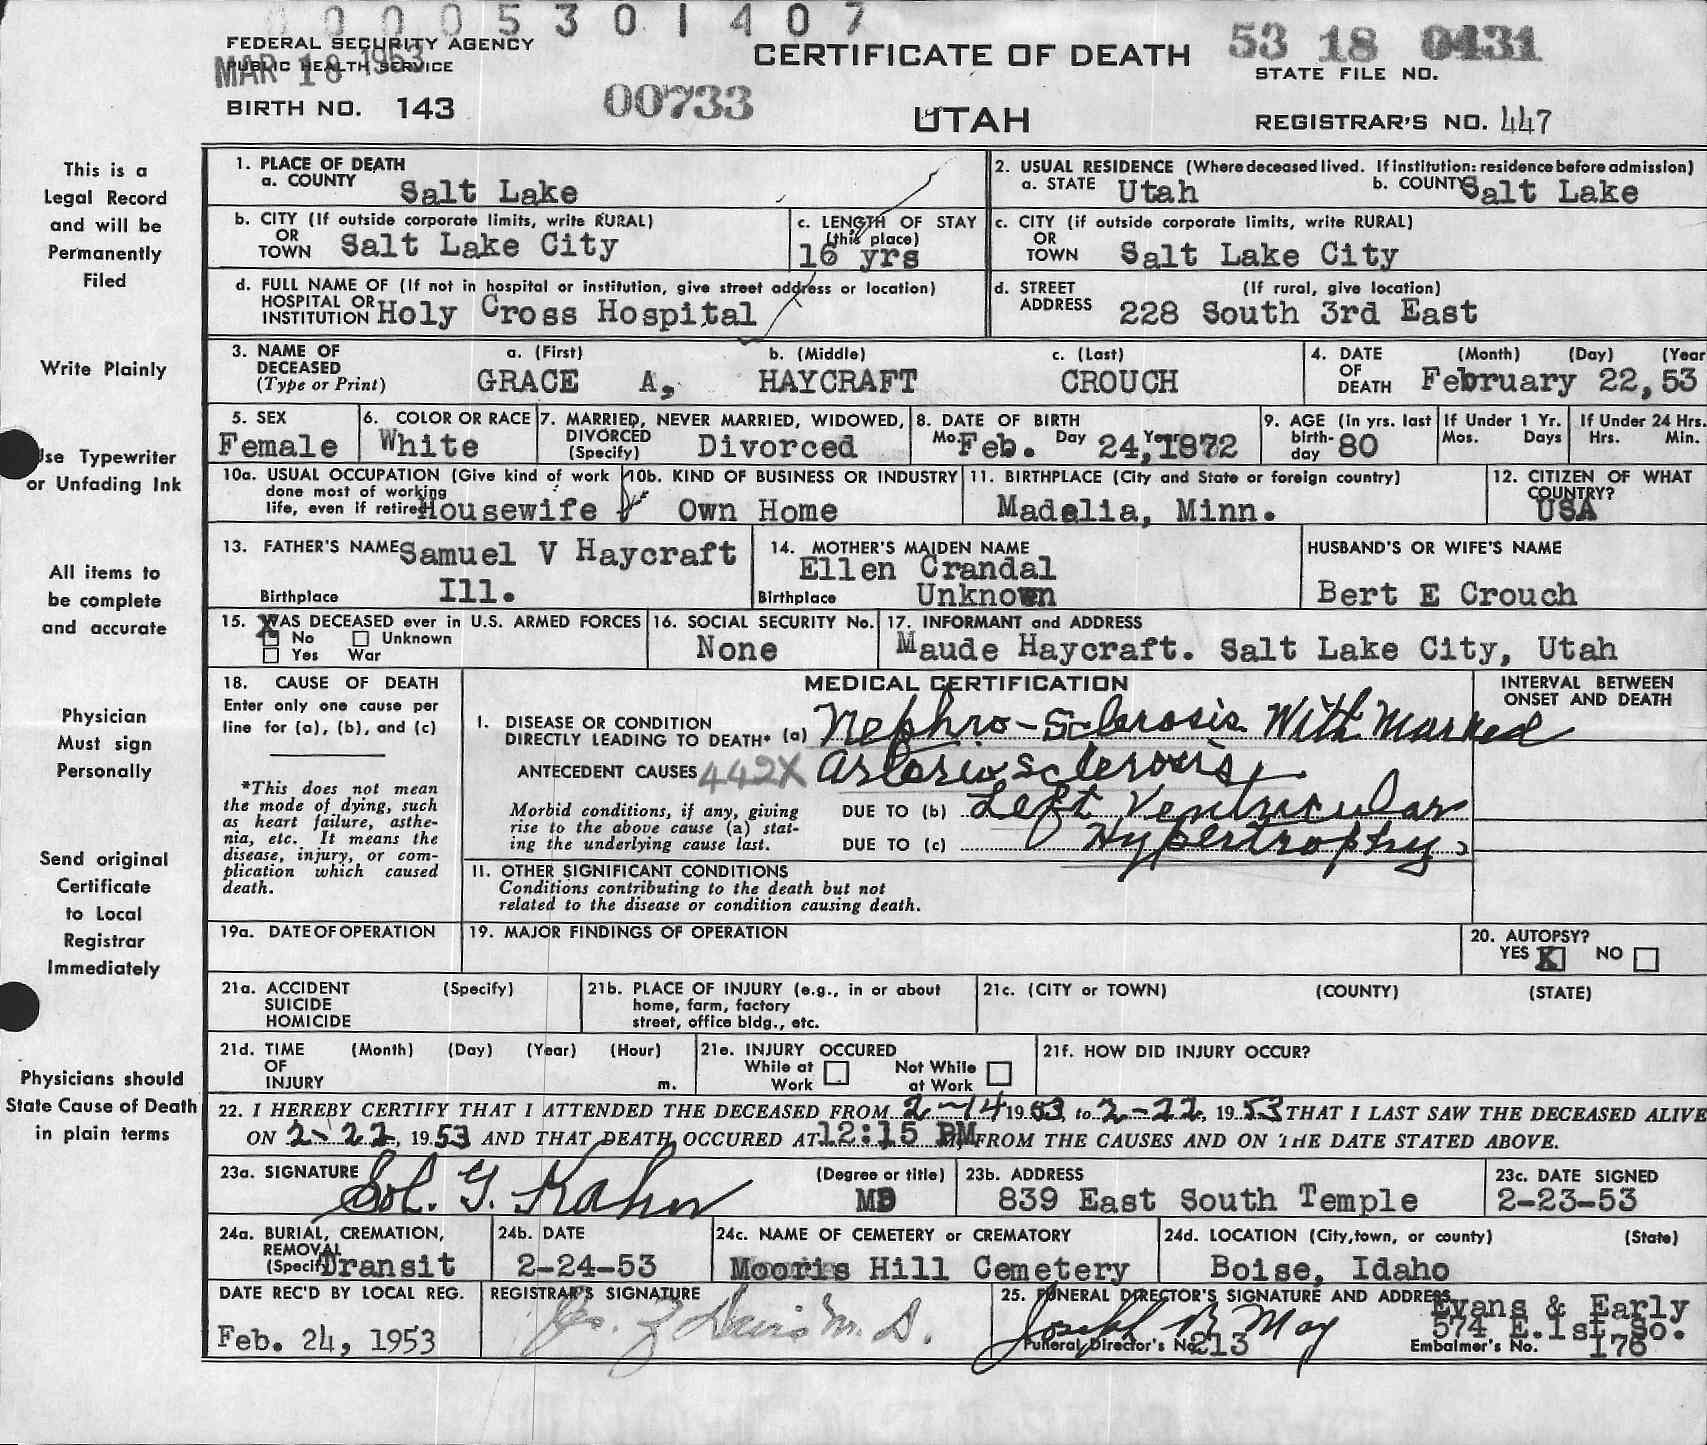 0 0 0 0 5 3 0 1 4 0 7
FEDERAL SECURITY AGENCY
PUBLIC HEALTH SERVICE
MAR 18 1953
BIRTH NO. 143
00733
CERTIFICATE OF DEATH
UTAH
53 18 0431
STATE FILE NO.
REGISTRAR'S NO. 447
This is a
Legal Record
and will be
Permanently
Filed
Write Plainly
Use Typewriter
or Unfading Ink
All items to
be complete
and accurate
Physician
Must sign
Personally
Send original
Certificate
to Local
Registrar
Immediately
Physicians should
State Cause of Death
in plain terms
1. PLACE OF DEATH
a. COUNTY Salt Lake
2. USUAL RESIDENCE (Where deceased lived. If institution: residence before admission)
a. STATE Utah b. COUNTY Salt Lake
b. CITY (If outside corporate limits, write RURAL)
OR
TOWN Salt Lake City
c. LENGTH OF STAY
(this place)
16 yrs
c. CITY (if outside corporate limits, write RURAL)
OR
TOWN Salt Lake City
d. FULL NAME OF (If not in hospital or institution, give street address or location)
HOSPITAL OR
INSTITUTION Holy Cross Hospital
d. STREET (If rural, give location)
ADDRESS 228 South 3rd East
3. NAME OF a. (First) b. (Middle) c. (Last)
DECEASED
(Type or Print) GRACE A, HAYCRAFT CROUCH
4. DATE (Month) (Day) (Year
OF
DEATH February 22, 53
5. SEX
Female
6. COLOR OR RACE
White
7. MARRIED, NEVER MARRIED, WIDOWED,
DIVORCED
(Specify) Divorced
8. DATE OF BIRTH
Mo. Feb. Day 24, Year 1872
9. AGE (in yrs. last
birth-
day 80
If Under 1 Yr.
Mos. Days
If Under 24 Hrs.
Hrs. Min.
10a. USUAL OCCUPATION (Give kind of work
done most of working
life, even if retired Housewife
10b. KIND OF BUSINESS OR INDUSTRY
Own Home
11. BIRTHPLACE (City and State or foreign country)
Madelia, Minn.
12. CITIZEN OF WHAT
COUNTRY?
USA
13. FATHER'S NAME Samuel V Haycraft
Birthplace Ill.
14. MOTHER'S MAIDEN NAME
Ellen Crandal
Birthplace Unknown
HUSBAND'S OR WIFE'S NAME
Bert E Crouch
15. WAS DECEASED ever in U.S. ARMED FORCES
X No Unknown
Yes War
16. SOCIAL SECURITY No.
None
17. INFORMANT and ADDRESS
Maude Haycraft. Salt Lake City, Utah
18. CAUSE OF DEATH
Enter only one cause per
line for (a), (b), and (c)
*This does not mean
the mode of dying, such
as heart failure, asthe-
nia, etc. It means the
disease, injury, or com-
plication which caused
death.
MEDICAL CERTIFICATION
INTERVAL BETWEEN
ONSET AND DEATH
I. DISEASE OR CONDITION
DIRECTLY LEADING TO DEATH* (a) Nephro-Sclerosis With Marked
ANTECEDENT CAUSES 442X Arteriosclerosis
Morbid conditions, if any, giving
rise to the above cause (a) stat-
ing the underlying cause last.
DUE TO (b) Left Ventricular
DUE TO (c) Hypertrophy
II. OTHER SIGNIFICANT CONDITIONS
Conditions contributing to the death but not
related to the disease or condition causing death.
19a. DATE OF OPERATION
19. MAJOR FINDINGS OF OPERATION
20. AUTOPSY?
YES X NO
21a. ACCIDENT (Specify)
SUICIDE
HOMICIDE
21b. PLACE OF INJURY (e.g., in or about
home, farm, factory
street, office bldg., etc.
21c. (CITY or TOWN) (COUNTY) (STATE)
21d. TIME (Month) (Day) (Year) (Hour)
OF
INJURY m.
21e. INJURY OCCURED
While at Not While
Work at Work
21f. HOW DID INJURY OCCUR?
22. I HEREBY CERTIFY THAT I ATTENDED THE DECEASED FROM 2-14 1953, to 2-22, 1953 THAT I LAST SAW THE DECEASED ALIVE
ON 2-22, 1953 AND THAT DEATH OCCURED AT 12:15 PM FROM THE CAUSES AND ON THE DATE STATED ABOVE.
23a. SIGNATURE Sol. G. Kahn (Degree or title) MD
23b. ADDRESS
839 East South Temple
23c. DATE SIGNED
2-23-53
24a. BURIAL, CREMATION,
REMOVAL
(Specify Transit
24b. DATE
2-24-53
24c. NAME OF CEMETERY or CREMATORY
Mooris Hill Cemetery
24d. LOCATION (City, town, or county) (State)
Boise, Idaho
DATE REC'D BY LOCAL REG.
Feb. 24, 1953
REGISTRAR'S SIGNATURE
Davis M. D.
25. FUNERAL DIRECTOR'S SIGNATURE AND ADDRESS
Evans & Early
Joseph R May 574 E. 1st So.
Funeral Director's No. 213 Embalmer's No. 176